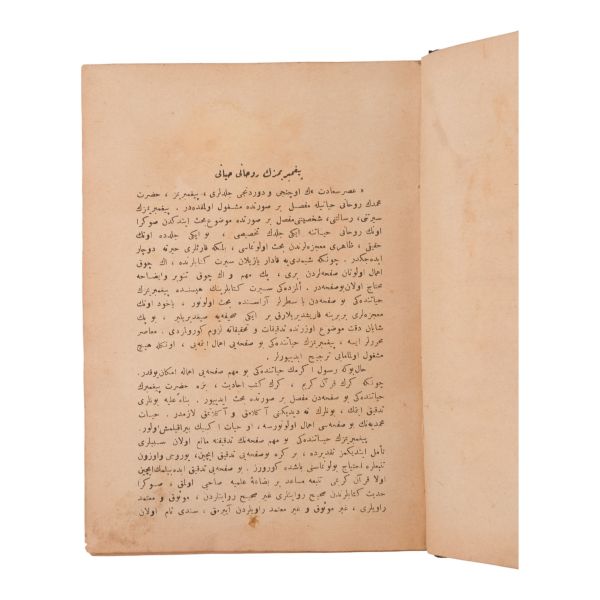 پیغمبریمزك روحانی حیاتی
« عصر سعادت » ك اوچنجی و دوردنجی جلدلری ، پیغمبریمز ، حضرت
محمدك روحانی حیاتیله مفصل بر صورتده مشغول اولمقده‌در . پیغمبریمزك
سیرتنی ، رسالتنی ، شخصیتنی مفصل بر صورتده موضوع بحث ایتدكدن صوكرا
اونك روحانی حیاتنه ایكی جلدك تخصیصی ، بو ایكی جلدده اونك
حقیقی ، ظاهری معجزه‌لرندن بحث اولونماسی ، بلكه قارئلری حیرته دوچار
ایده‌جكدر . چونكه شیمدی‌یه قادار یازیلان سیرت كتابلرنده ، اك چوق
اهمال اولونان صفحه‌لردن بری ، پك مهم و اك چوق تنویر و ایضاحه
محتاج اولان بوصفحه‌در . المزده‌كی سیرت كتابلرینك هیسنده پیغمبریمزك
حیاتنده‌كی بو صفحه‌دن یا سطرلر آراسنده بحث اولونور ، یاخود اونك
معجزه‌لری بربرینه قاریشدیریلارق بر ایكی صحیفه‌یه صیغدیریلیر ، بو پك
شایان دقت موضوع اوزرنده تدقیقات و تحقیقاته لزوم كورولمزدی . معاصر
محررلر ایسه ، پیغمبریمزك حیاتنده‌كی بو صفحه‌یی اهمال ایتمه‌یی ، اونكله هیچ
مشغول اولمامایی ترجیح ایدییورلر .
حال‌بوكه رسول اكرمك حیاتنده‌كی بو مهم صفحه‌یی اهماله امكان یوقدر.
چونكه كرك قرآن كریم ، كرك كتب احادیث ، بزه حضرت پیغمبرك
حیاتنده‌كی بو صفحه‌دن مفصل بر صورتده بحث ایدییور . بناءً علیه بونلری
تدقیق ایتمك ، بونلرك نه دیدیكنی آكلامق و آكلاتمق لازمدر . حیات
محمدیه‌نك بو صفحه‌سی اهمال اولونورسه ، او حیات اكسیك بیراقیلمش اولور.
پیغمبریمزك حیاتنده‌كی بو مهم صفحه‌نك تدقیقنه مانع اولان سببلری
تأمل ایتدیكمز تقدیرده ، بر كره بوصفحه‌یی تدقیق ایچین، یوروجی و اوزون
تتبعلره احتیاج بولوناسنی باشده كورورز . بو صفحه‌یی تدقیق ایده‌بیلمك ایچین
اولا قرآن كریمی تتبعه مساعد بر بضاعهٔ علمیه صاحبی اولمق ، صوكرا
حدیث كتابلرندن صحیح روایتلری غیر صحیح روایتلردن ، موثوق و معتمد
راویلری ، غیر موثوق و غیر معتمد راویلردن آییرمق ، سندی تام اولان